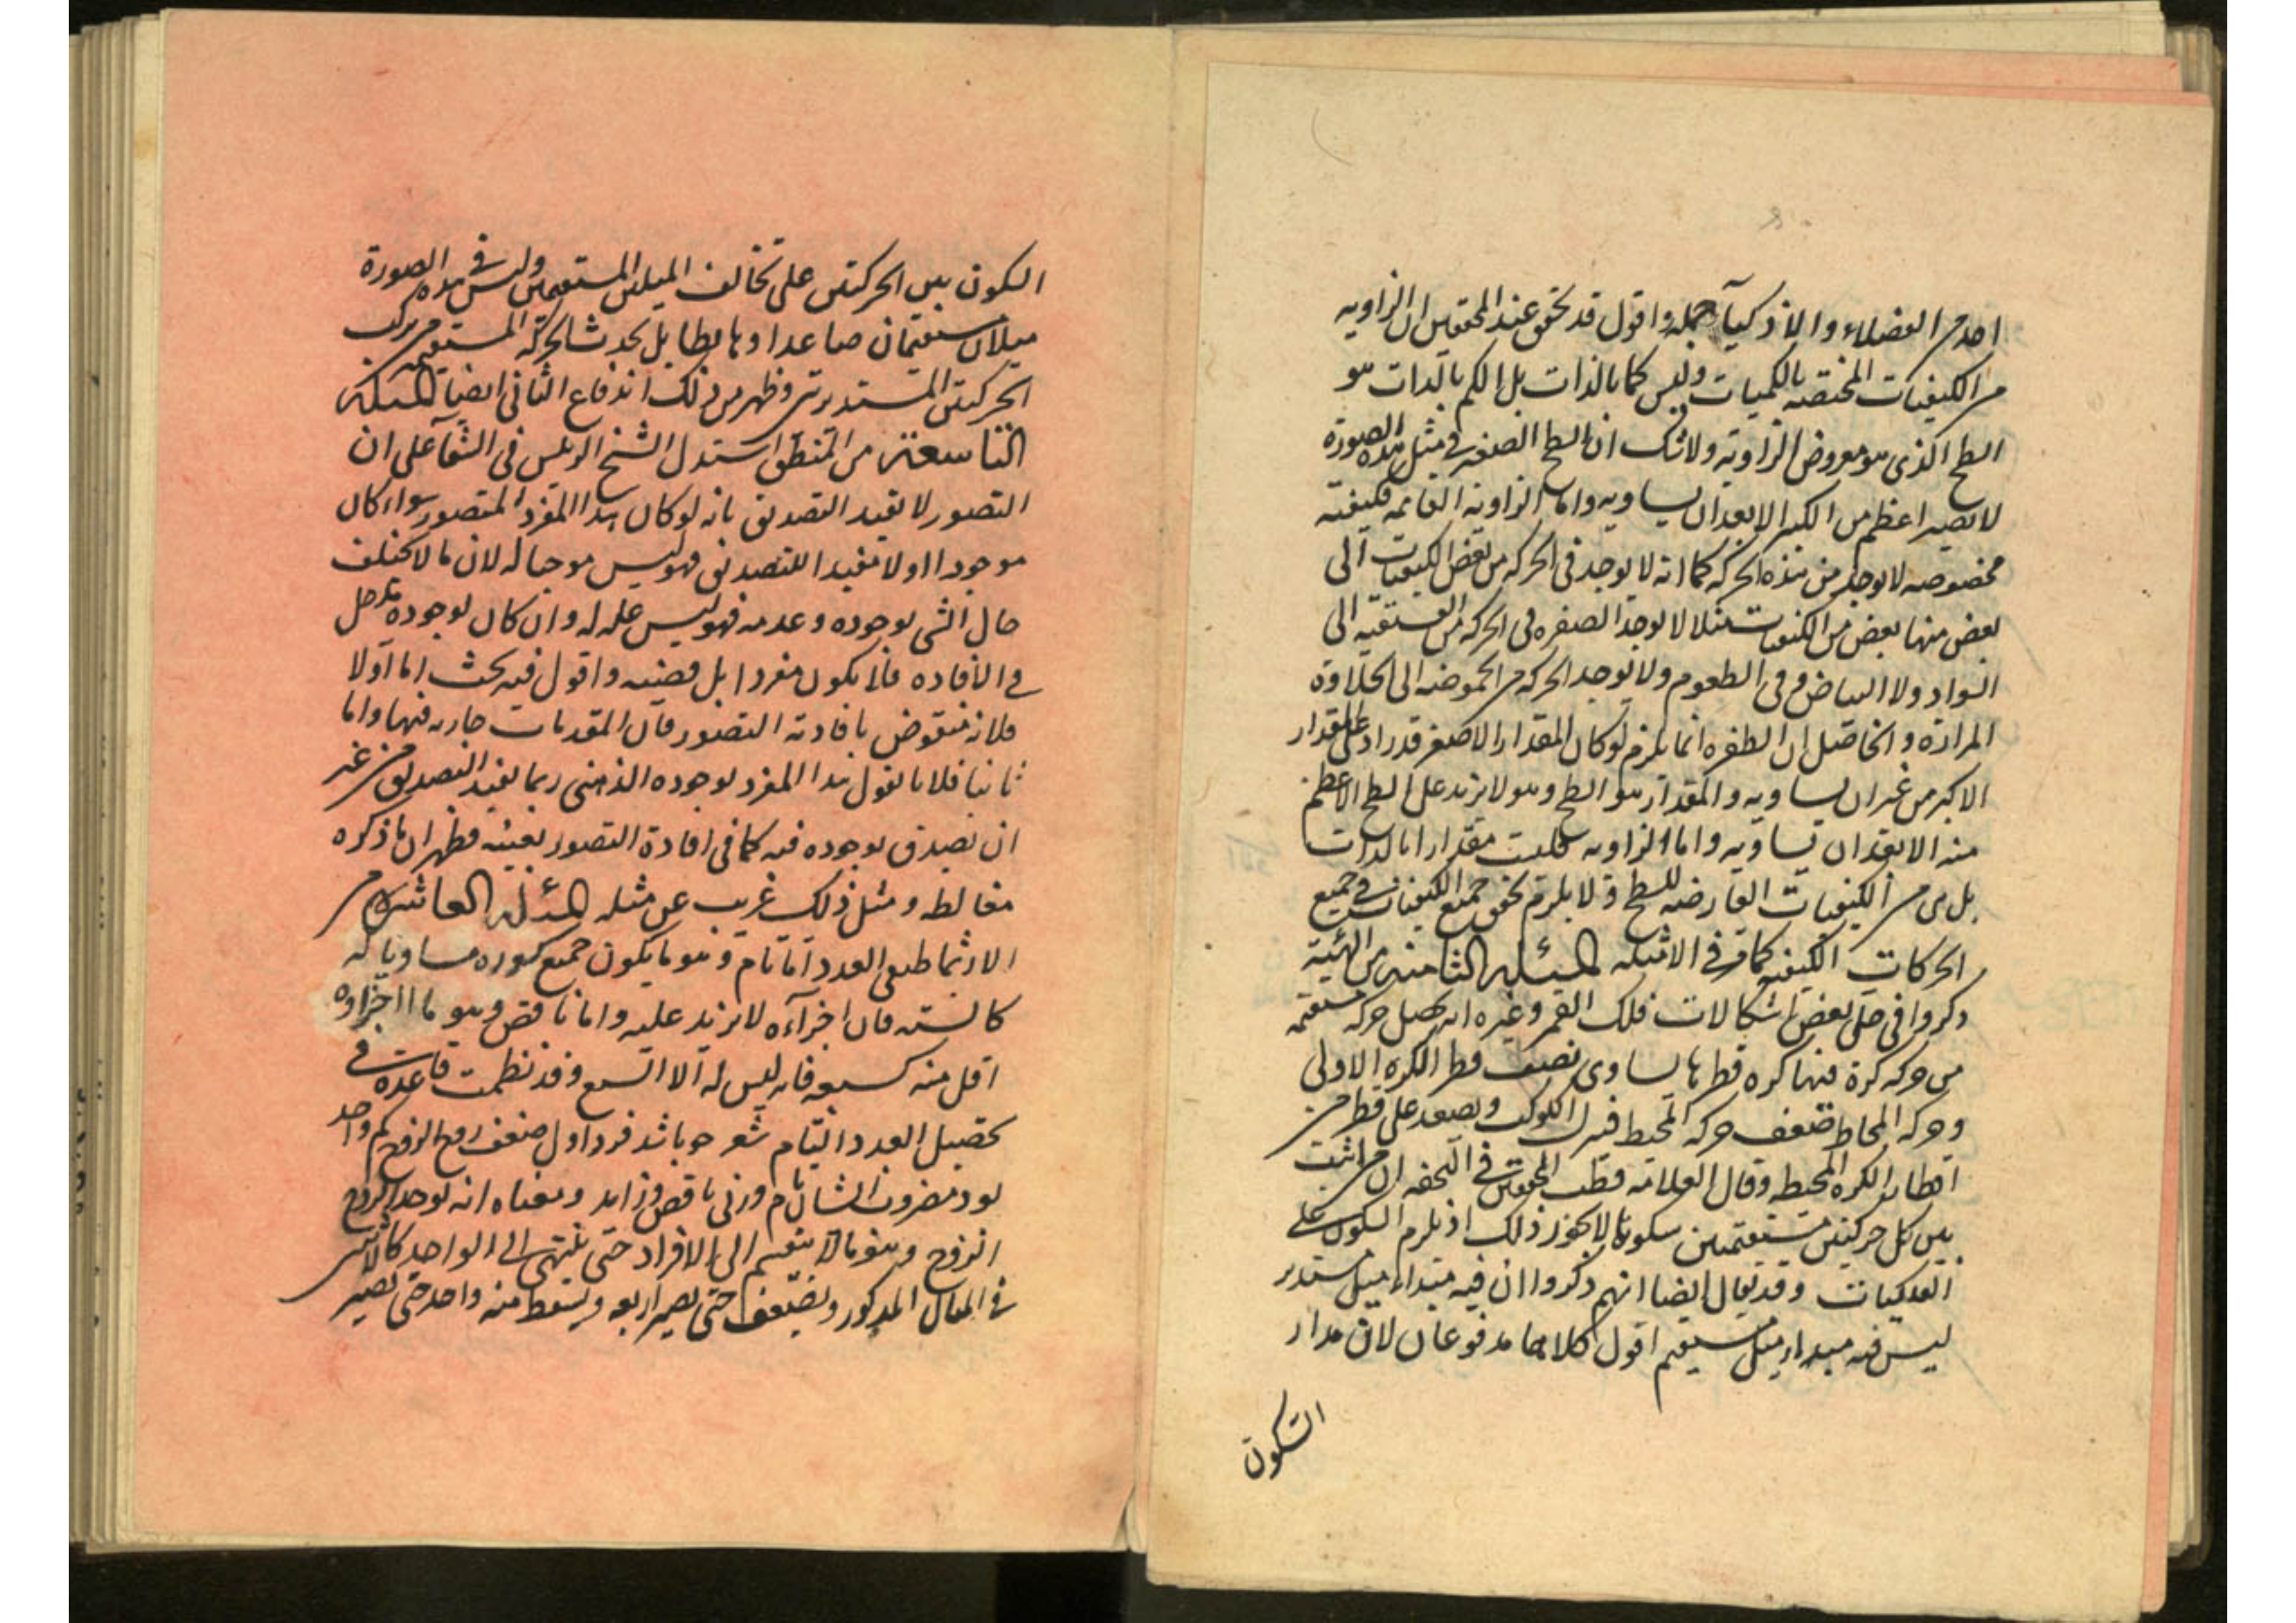 احد من الفضلاء والاذكيآ حمله واقول قد تحقق عند المحققين ان الزاويه
من الكيفيات المختصه بالكميات وليس كما بالذات بل الكم بالذات هو
السطح الذى هو معروض الزاويه ولا شك ان السطح الصغير فى مثل هذه الصورة
لا يصير اعظم من الكبير الا بعد ان يساويه واما الزاوية القايمه فكيفية
مخصوصه لا يوجد من هذه الحركه كما انه لا يوجد فى الحركه من بعض الكيفيات الى
بعض منها بعض من الكيفيات مثلا لا يوجد الصفره فى الحركه من الفستقيه الى
السواد ولا البياض و فى الطعوم ولا يوجد الحركه من الحموضه الى الحلاوة
المرارة و الحاصل ان الطفره انما يلزم لو كان المقدار الاصغر قد زاد على المقدار
الاكبر من غير ان يساويه والمقدار هو السطح وهو لا يزيد على السطح الاعظم
منه الا بعد ان يساويه واما الزاويه فليست مقدارا بالذات
بل هى من الكيفيات العارضه للسطح و لا يلزم تحقق جميع الكيفيات فى جميع
الحركات الكيفيه كما مر فى الامثله المسئله الثامنه من الهيئة
ذكروا فى حل بعض اشكالات فلك القمر وغيره انه يحصل حركه مستقيمه
من حركه كرة فيها كره قطرها يساوى نصف قطر الكره الاولى
وحركه المحاط ضعف حركه المحيط فينزل الكوكب ويصعد على قطر من
اقطار الكره المحيطه وقال العلامه قطب المحققين فى التحفه ان من اثبت
بين كل حركتين مستقيمتين سكونا لا يجوز ذلك اذ يلزم السكون على
الفلكيات وقد يقال ايضا انهم ذكروا ان فيه مبداء ميل مستدير
ليس فيه مبداء ميل مستقيم اقول كلاهما مدفوعان لان مدار
السكون
السكون بين الحركتين على تخالف الميلين المستقيمين وليس فى هذه الصورة
ميلان مستقيمان صاعدا وهابطا بل يحدث الحركة المستقيمه من تركب
الحركتين المستديرتين وظهر من ذلك اندفاع الثانى ايضا المسئله
التاسعة من المنطق استدل الشيخ الرئيس فى الشفآ على ان
التصور لا يفيد التصديق بانه لو كان هذا المفرد المتصور سواء كان
موجودا او لا مفيدا للتصديق فهو ليس موجبا له لان ما لا يختلف
حال الشى بوجوده وعدمه فهو ليس علة له وان كان لوجوده مدخل
فى الافاده فلا يكون مفردا بل قضيه واقول فيه بحث اما اولا
فلانه منقوض بافادته التصور فان المقدمات جاريه فيها واما
ثانيا فلانا نقول هذا المفرد بوجوده الذهنى ربما يفيد التصديق من غير
ان نصدق بوجوده فيه كما فى افادة التصور بعينه فظهر ان ما ذكره
مغالطه ومثل ذلك غريب عن مثله المسئله العاشره من
الارثماطيقى العدد اما تام وهو ما يكون جميع كسوره مساويا له
كالسته فان اجزآءه لا يزيد عليه واما ناقص وهو ما اجزاوه
اقل منه كسبعه فانه ليس له الا السبع وقد نظمت قاعده فى
تحصيل العدد التام شعر چو باشد فرد اول ضعف زوج الزوج كم واحد
بود مضروب ايشان تام ورنى ناقص وزايد ومعناه انه يوخذ الزوج
الزوج وهو ما لا ينقسم الى الافراد حتى ينتهى الى الواحد كالاثنين
فى المثال المذكور ويضعف حتى يصير اربعه ويسقط منه واحد حتى يصير